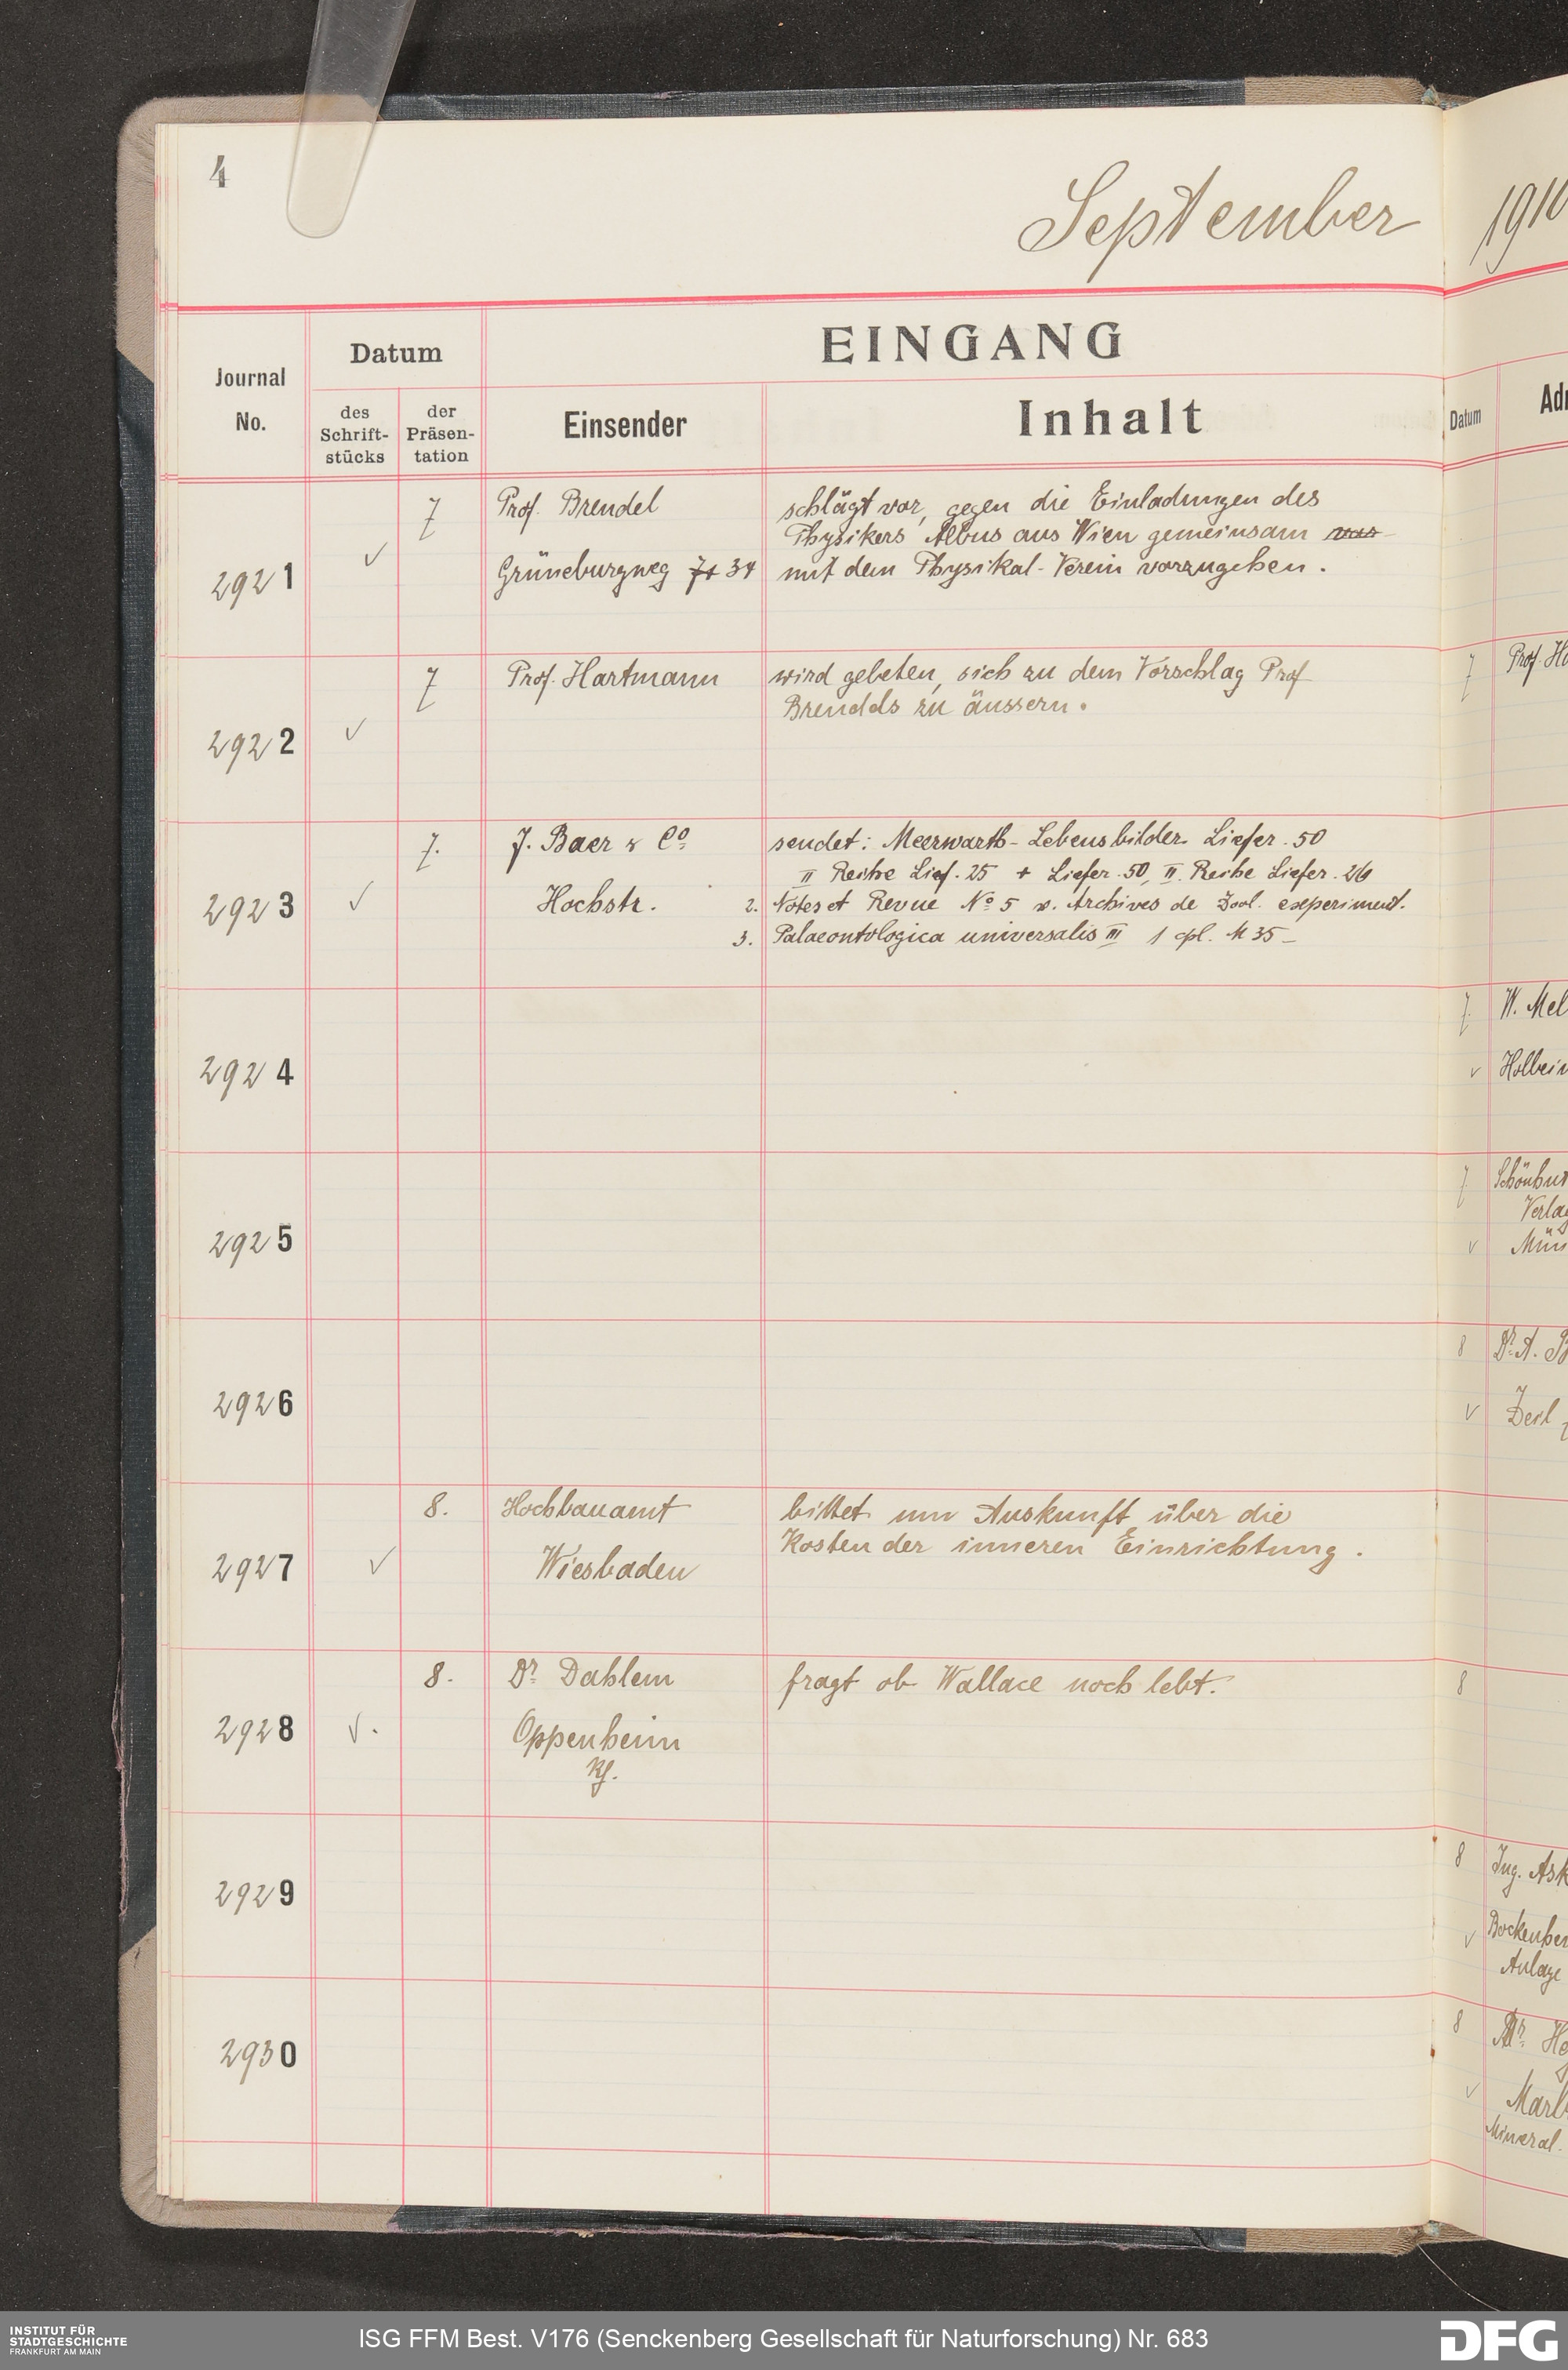 4
September 1910
EINGANG
Journal No.
Datum
des Schrift-stücks
der Präsen-tation
Einsender
Inhalt
Datum
2921
✓
7
Prof. Brendel
Grüneburgweg 34
schlägt vor, gegen die Einladungen des
Physikers Albus aus Wien gemeinsam
mit dem Physikal-Verein vorzugehen.
2922
✓
7
Prof. Hartmann
wird gebeten, sich zu dem Vorschlag Prof
Brendels zu äussern.
7
2923
✓
7.
J. Baer & Co.
Hochstr.
sendet: Meerwarth-Lebensbilder Liefer. 50
II Reihe Lief. 25 + Liefer. 50, II. Reihe Liefer. 26
2. Notes et Revue No 5 v. Archives de Zool. experiment.
3. Palaeontologica universalis III 1 cpl. M 35 –
2924
7.
W. Mel
✓
2925
7
✓
2926
8
Dr. A.
✓
2927
✓
8.
Hochbauamt
Wiesbaden
bittet um Auskunft über die
Kosten der inneren Einrichtung.
2928
✓.
8.
Dr. Dahlem
Oppenheim
fragt ob Wallace noch lebt.
8
2929
8
Ing. Ask
✓
Bockenhei
Anlage
2930
8
✓
Marb
Mineral.
INSTITUT FÜR
STADTGESCHICHTE
FRANKFURT AM MAIN
ISG FFM Best. V176 (Senckenberg Gesellschaft für Naturforschung) Nr. 683
DFG